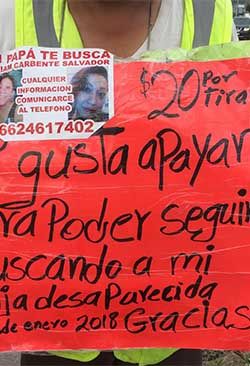 PAPÁ TE BUSCA
CARBENTE SALVADOR
CUALQUIER
INFORMACIÓN
COMUNICARCE
AL TELEFONÓ
6624617402
$20 POR
Tira
gusta apayar
Poder seguir
buscando a mi
desaparecida
de enero 2018 Gracias